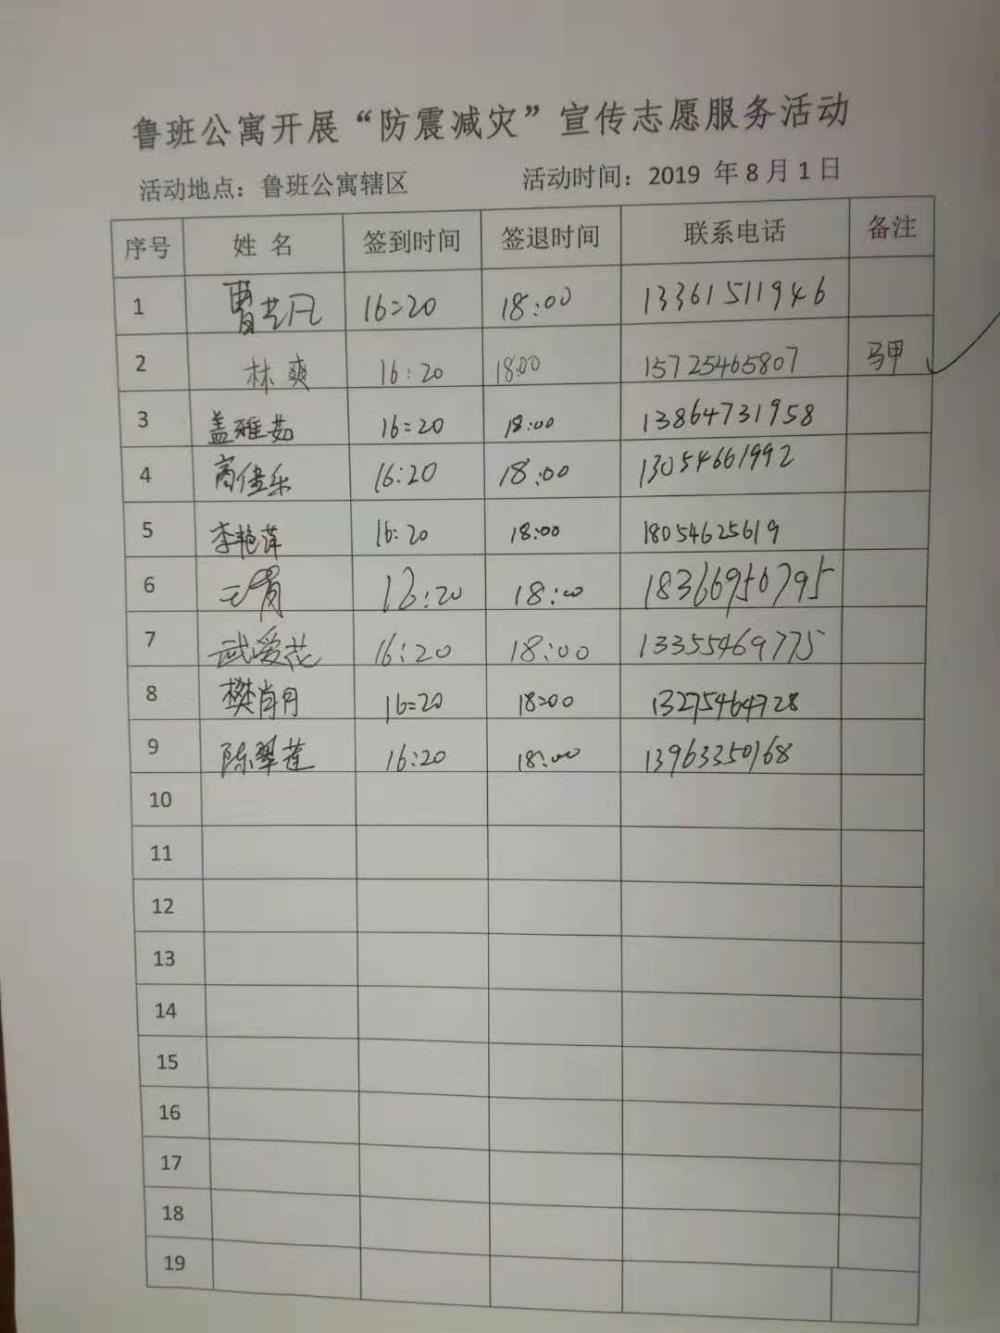 鲁班公寓开展“防震减灾”宣传志愿服务活动
活动地点：鲁班公寓辖区 活动时间：2019 年 8 月 1 日
序号 姓 名 签到时间 签退时间 联系电话 备注
1 曹芸凡 16:20 18:00 13361511946
2 林爽 16:20 18:00 15725465807 马甲
3 盖雅茹 16:20 18:00 13864731958
4 高佳乐 16:20 18:00 13054661992
5 李艳萍 16:20 18:00 18054625619
6 16:20 18:00 18366950795
7 武爱花 16:20 18:00 13355469775
8 樊肖月 16:20 18:00 13275464728
9 陈翠莲 16:20 18:00 13963350168
10
11
12
13
14
15
16
17
18
19